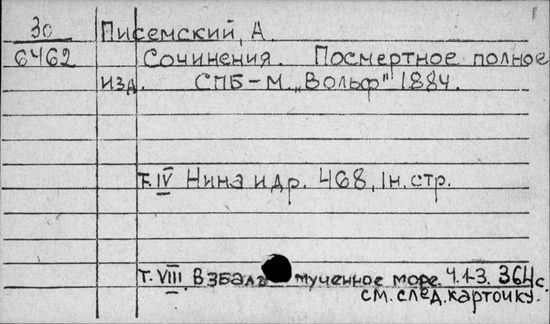 30 Писемский, А.
6462 Сочинения. Посмертное полное
изд. СПБ-М. „Вольф" 1884.
т. IV Нина и др. 468, 1н. стр.
т. VIII. Взбал мученное море. Ч. 1-3. 364 с.
см. след. карточку.